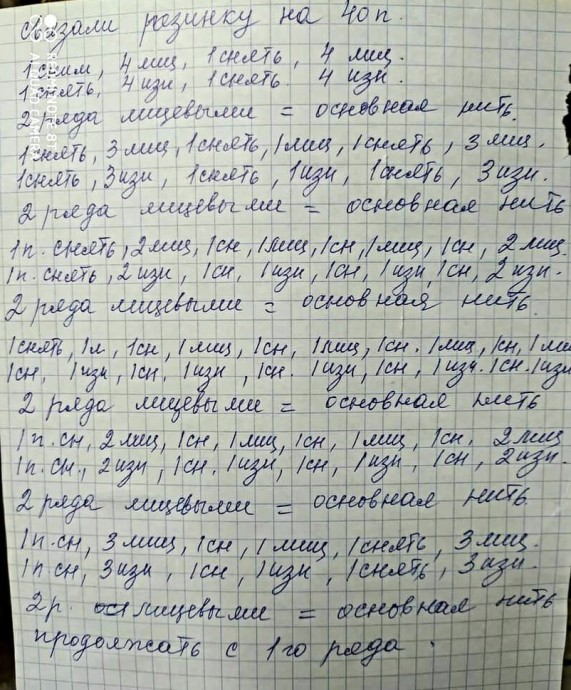 связали резинку на 40п.
1сним, 4 лиц, 1снять, 4 лиц.
1снять, 4изн, 1снять. 4 изн.
2 ряда лицевыми = основная нить.
1снять, 3 лиц, 1снять, 1лиц, 1снять, 3 лиц.
1снять, 3изн, 1снять, 1изн, 1снять, 3изн.
2 ряда лицевыми = основная нить
1п. снять, 2лиц, 1сн, 1лиц, 1сн, 1лиц, 1сн, 2 лиц.
1п. снять, 2 изн, 1сн, 1изн, 1сн, 1изн, 1сн, 2 изн.
2 ряда лицевыми = основная нить.
1снять, 1л, 1сн, 1лиц, 1сн, 1лиц, 1сн. 1лиц, 1сн, 1ли
1сн, 1изн, 1сн, 1изн, 1сн. 1изн, 1сн, 1изн. 1сн. 1изн
2 ряда лицевыми = основная нить
1п. сн, 2лиц, 1сн, 1лиц, 1сн, 1лиц, 1сн, 2лиц
1п. сн., 2изн, 1сн. 1изн, 1сн, 1изн, 1сн, 2изн.
2 ряда лицевыми = основная нить
1п.сн, 3 лиц, 1сн, 1лиц, 1снять, 3лиц.
1п сн, 3изн, 1сн, 1изн, 1снять, 3изн.
2р. лицевыми = основная нить
продолжать с 1го ряда.